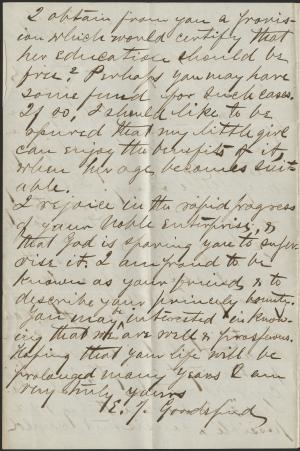 I obtain from you a provis-
ion which would certify that
her education should be
free? Perhaps you may have
some fund for such cases.
If so, I should like to be
assured that my little girl
can enjoy the benefits of it,
when her age becomes suit-
able.
I rejoice in the rapid progress
of your noble enterprise, &
that God is sparing you to super-
vise it. I am proud to be
known as your friend, & to
describe your princely bounty.
You may be interested in know-
ing that we are well & prosperous.
Hoping that your life will be
prolonged many years I am
Very truly yours
E. J. Goodspeed,